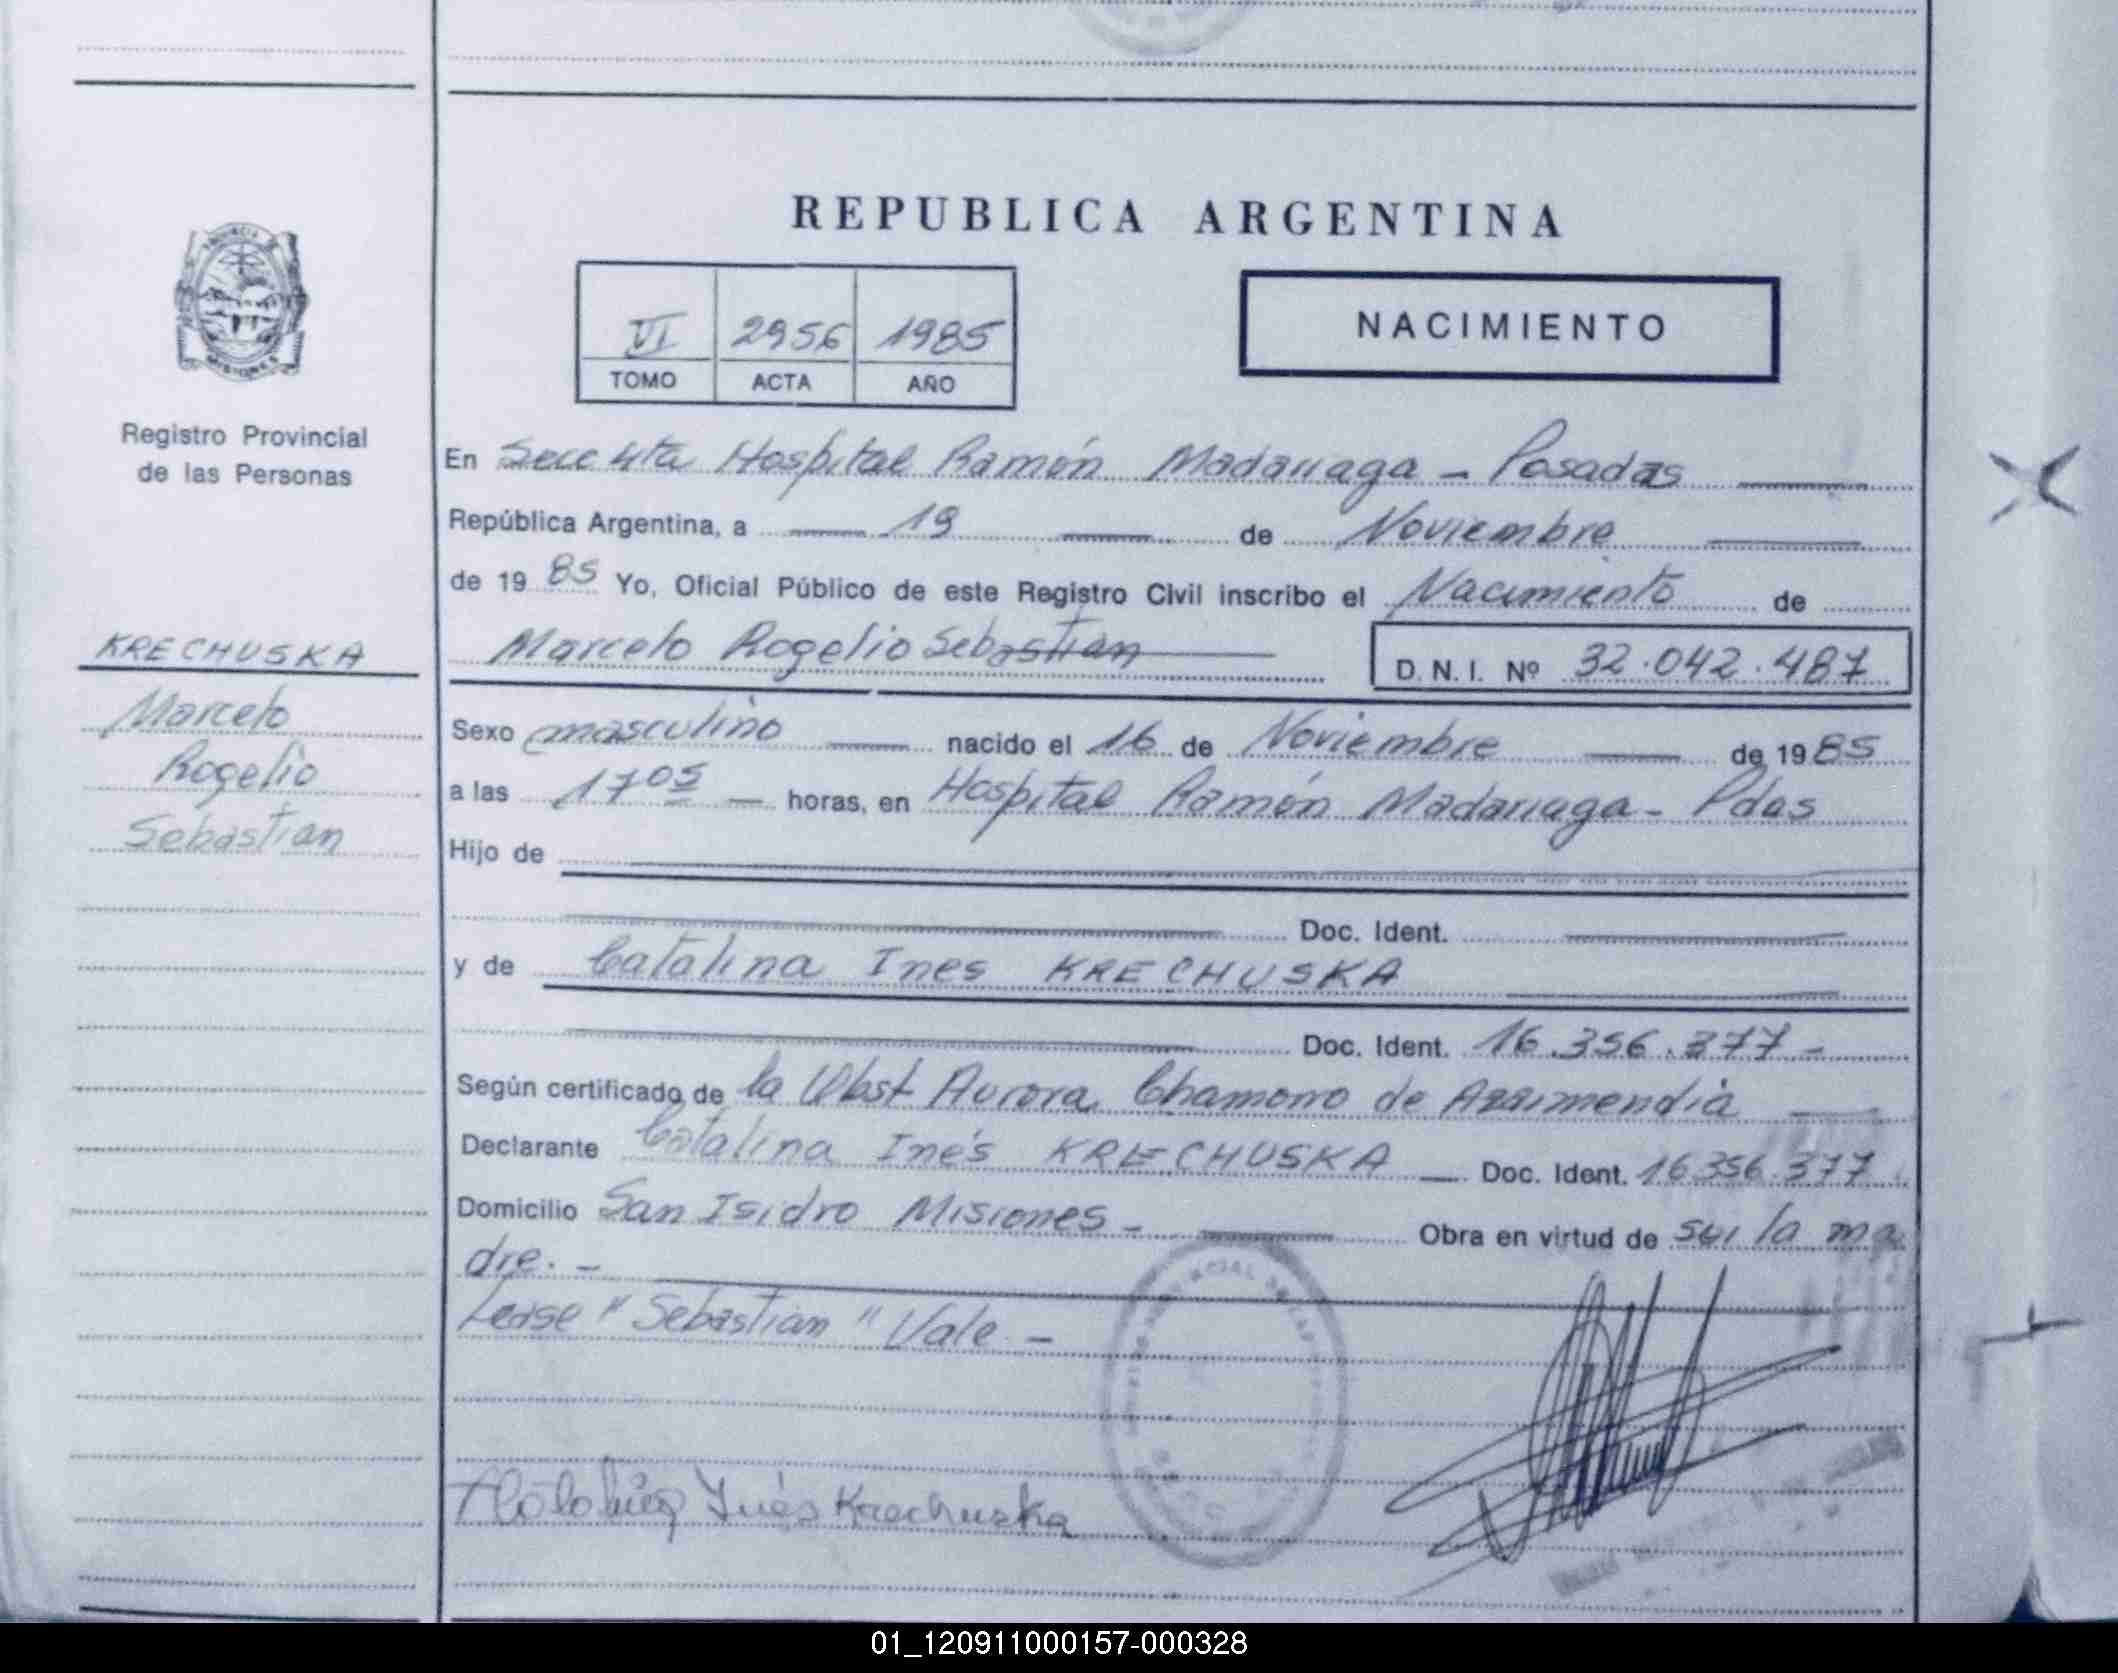 REPUBLICA ARGENTINA
VI 2956 1985
TOMO ACTA AÑO
NACIMIENTO
PROVINCIA DE
MISIONES
Registro Provincial
de las Personas
KRECHUSKA
Marcelo
Rogelio
Sebastian
En Secc 4ta Hospital Ramón Madariaga - Posadas
República Argentina, a 19 de Noviembre
de 1985 Yo, Oficial Público de este Registro Civil inscribo el Nacimiento de
Marcelo Rogelio Sebastian D. N. I. Nº 32.042.487
Sexo masculino nacido el 16 de Noviembre de 1985
a las 17 05 horas, en Hospital Ramón Madariaga - Pdas
Hijo de
Doc. Ident.
y de Catalina Ines KRECHUSKA
Doc. Ident. 16.356.377 -
Según certificado de la Obst Aurora Chamorro de Azaimendia
Declarante Catalina Inés KRECHUSKA - Doc. Ident. 16356.377
Domicilio San Isidro Misiones - Obra en virtud de sui la ma
dre. -
Lease "Sebastian" Vale -
Inés Krechuska
01_120911000157-000328